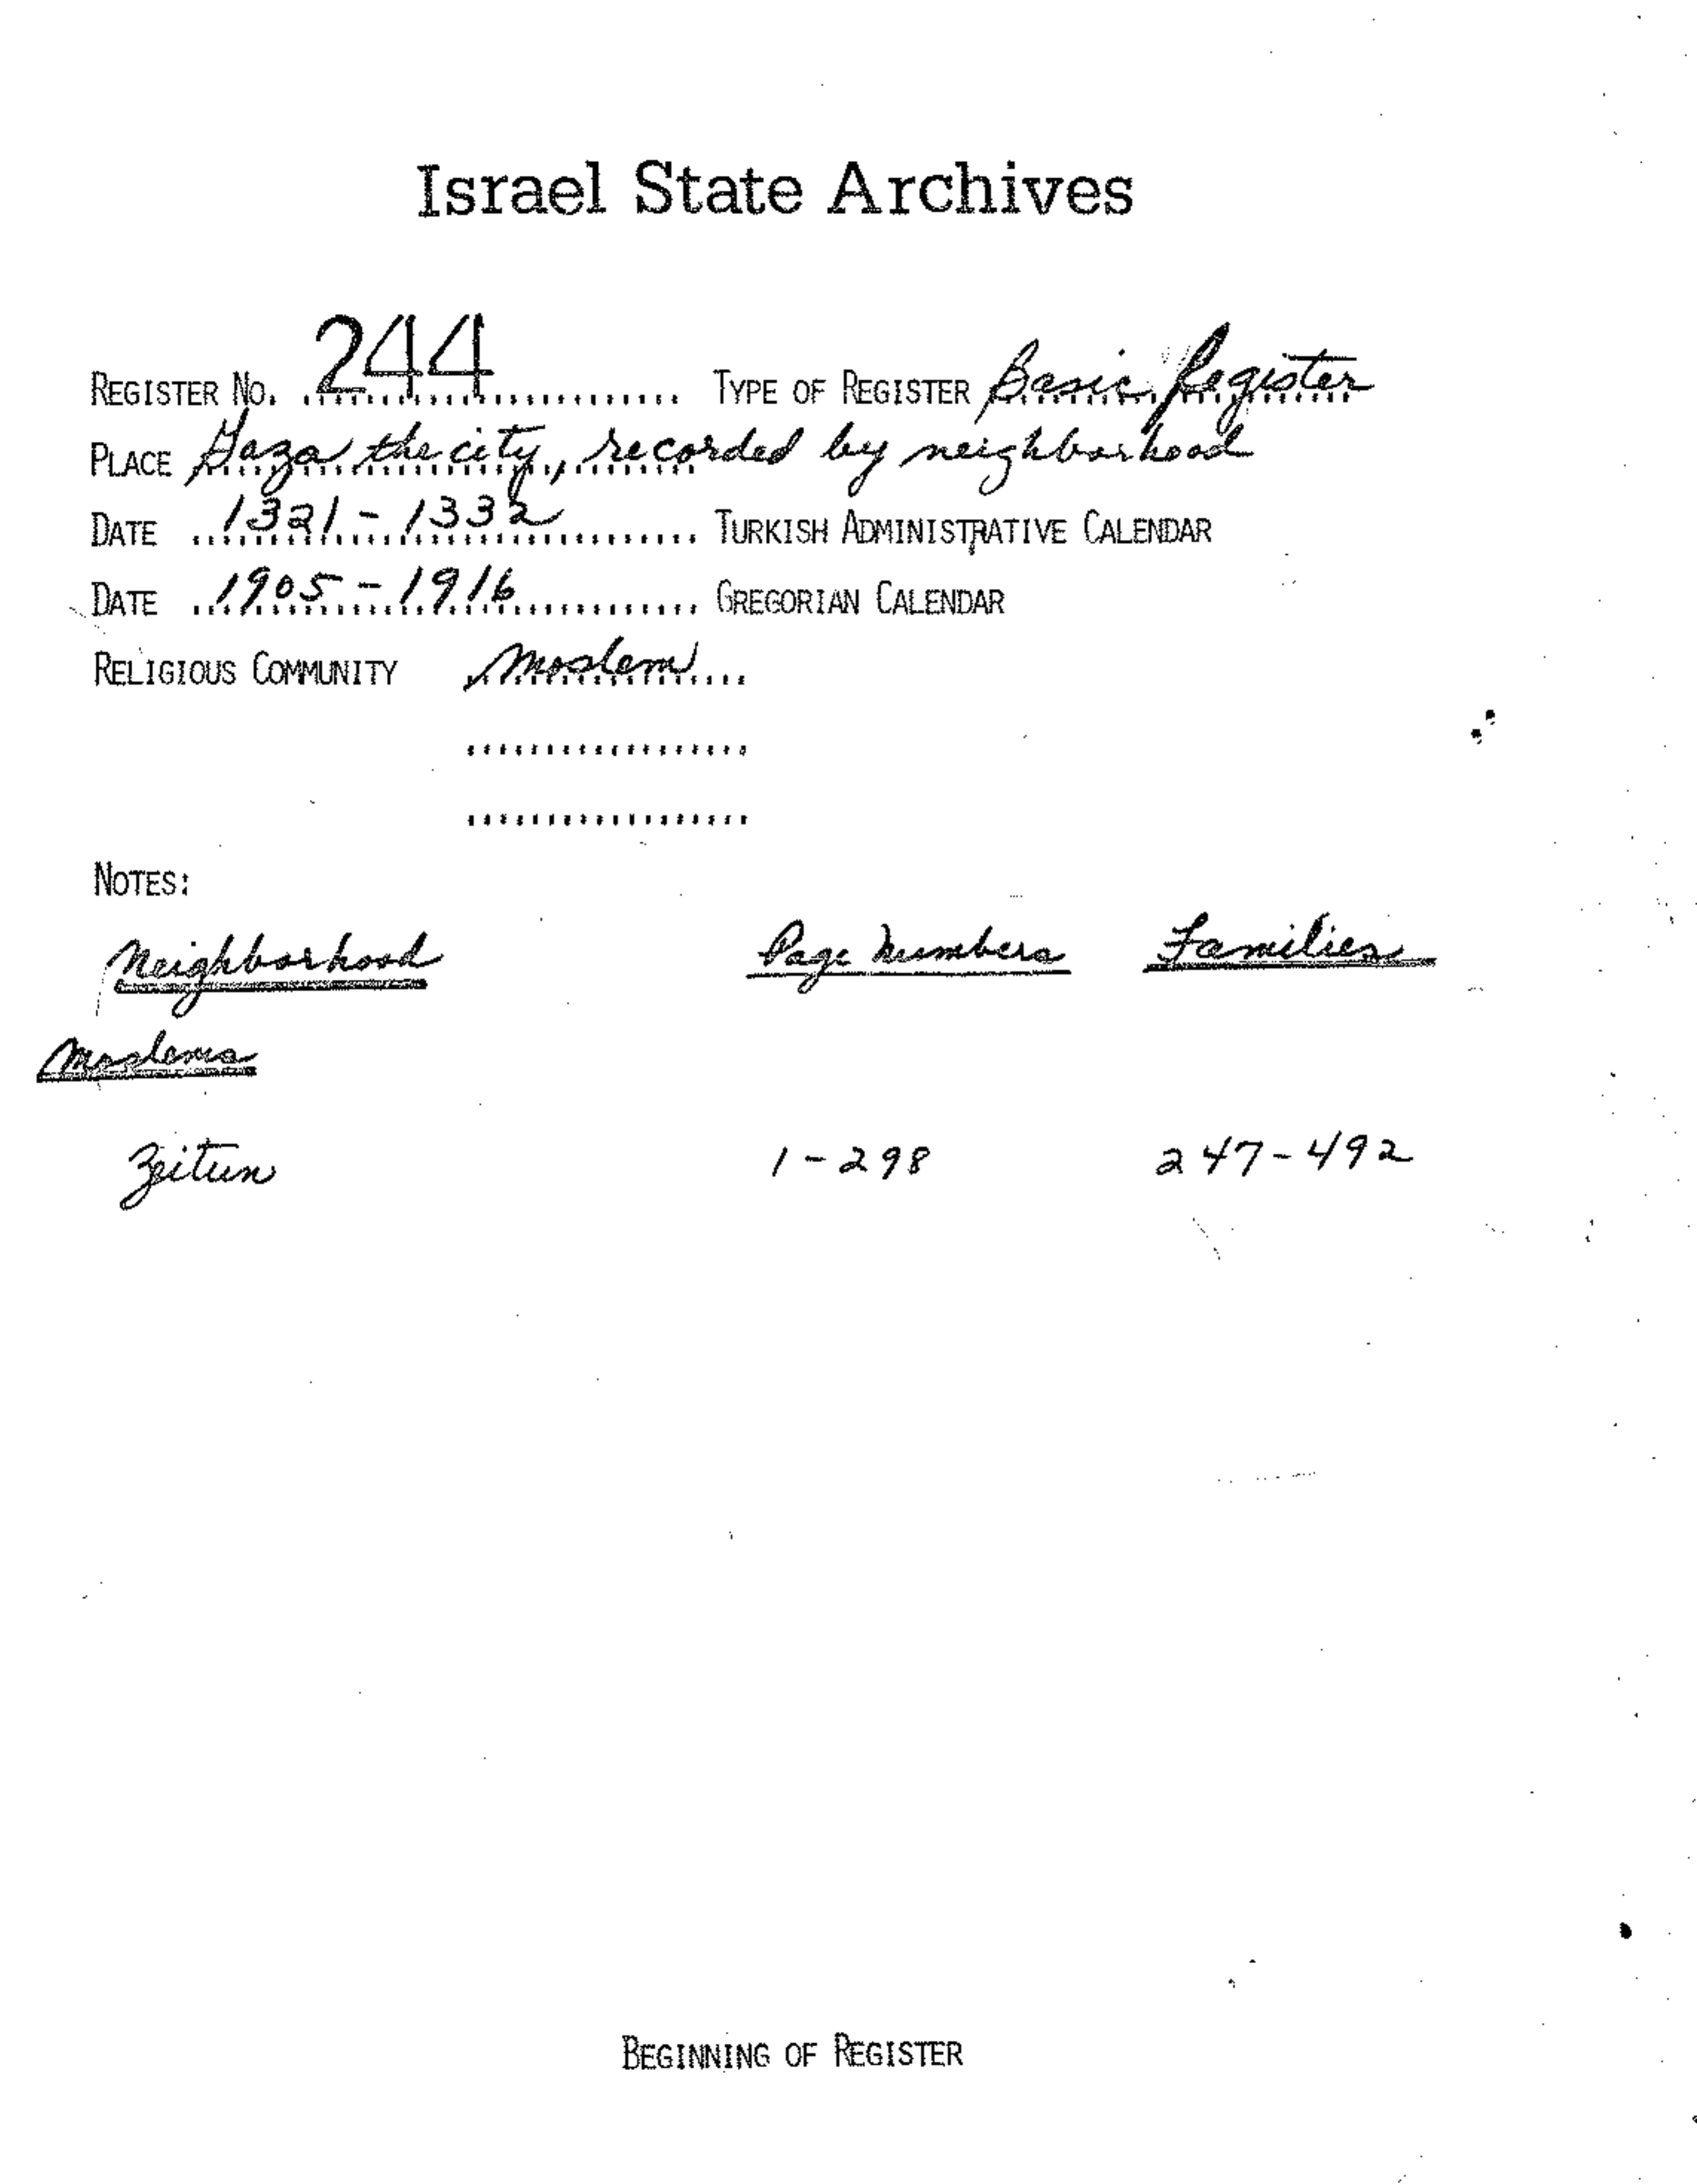 Israel State Archives
REGISTER NO. 244 TYPE OF REGISTER Basic Register
PLACE Gaza the city, recorded by neighborhood
DATE 1321-1332 TURKISH ADMINISTRATIVE CALENDAR
DATE 1905-1916 GREGORIAN CALENDAR
RELIGIOUS COMMUNITY Moslem
NOTES:
Neighborhood Page Numbers Families
Moslems
Zeitun 1-298 247-492
BEGINNING OF REGISTER